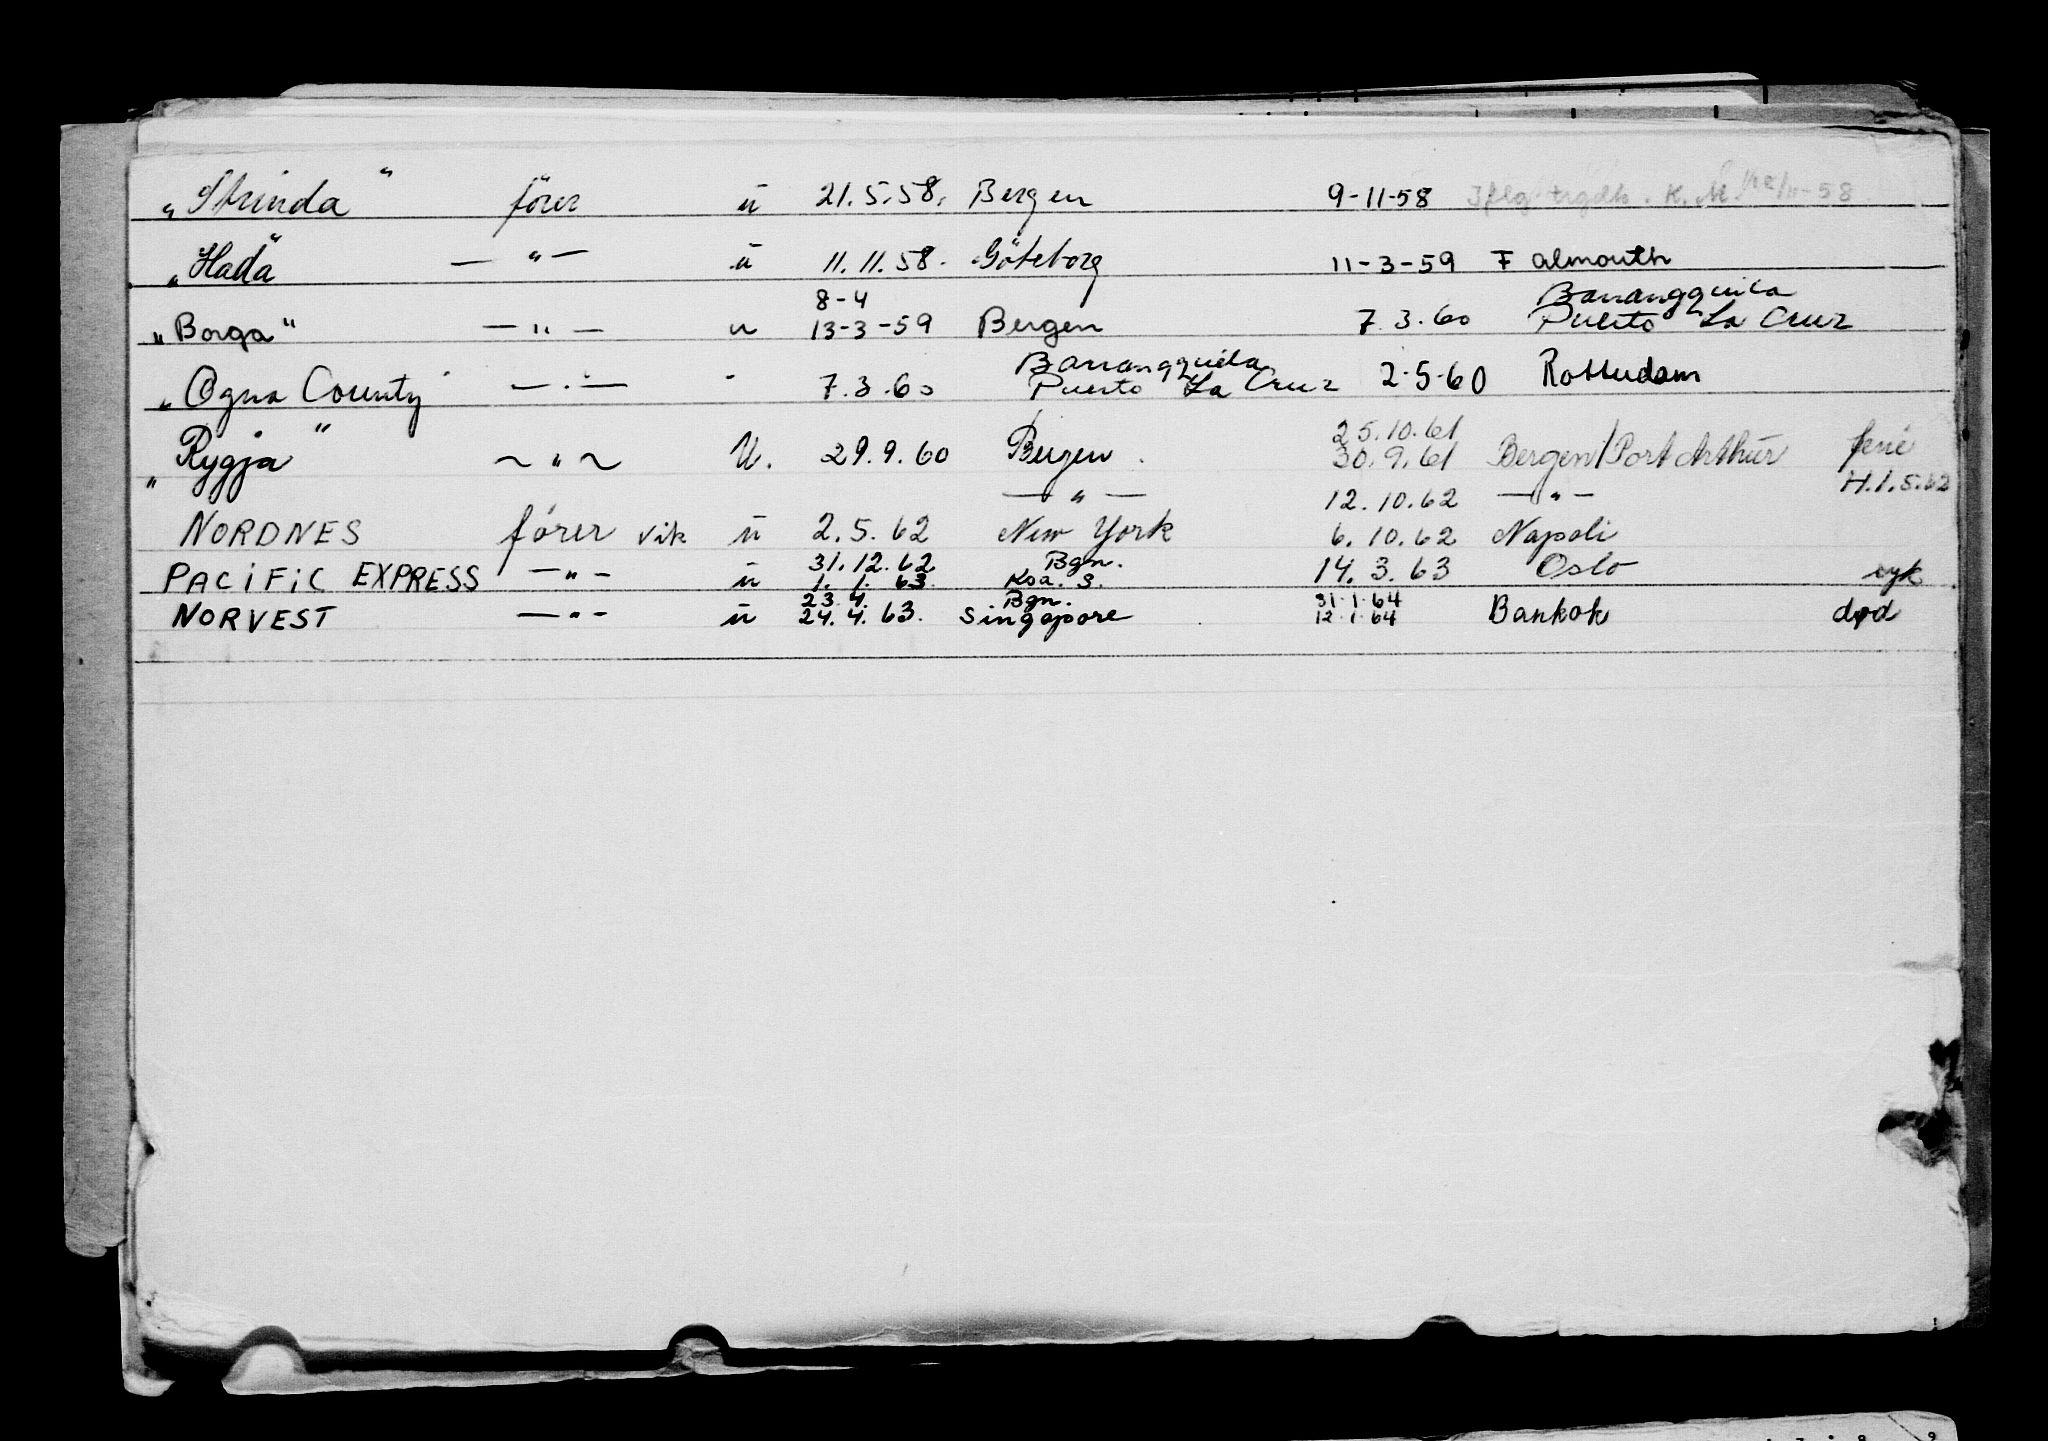 "Strinda" fører u 21.5.58. Bergen 9-11-58 Iflg. trygdk. K.M. 12/11-58
"Hada" — " — u 11.11.58. Göteborg 11-3-59 Falmouth
8-4 Barrangquila
"Borga" — " — u 13-3-59 Bergen 7.3.60 Puerto La Cruz
Barrangquila
"Ogna County" — " — " 7.3.60 Puerto La Cruz 2-5-60 Rotterdam
25.10.61
"Rygja" ~ " ~ U. 29.9.60 Bergen. 30.9.61 Bergen/Port Arthur ferie
— " — 12.10.62 — " — H.1.5.62
NORDNES fører vik u 2.5.62 New York 6.10.62 Napoli
31.12.62 Bgn.
PACIFIC EXPRESS — " — u 1.1.63. Ksa. S. 14.3.63 Oslo syk
23.4. Bgn. 31.1.64
NORVEST — " — u 24.4.63. Singapore 12.1.64 Bankok død